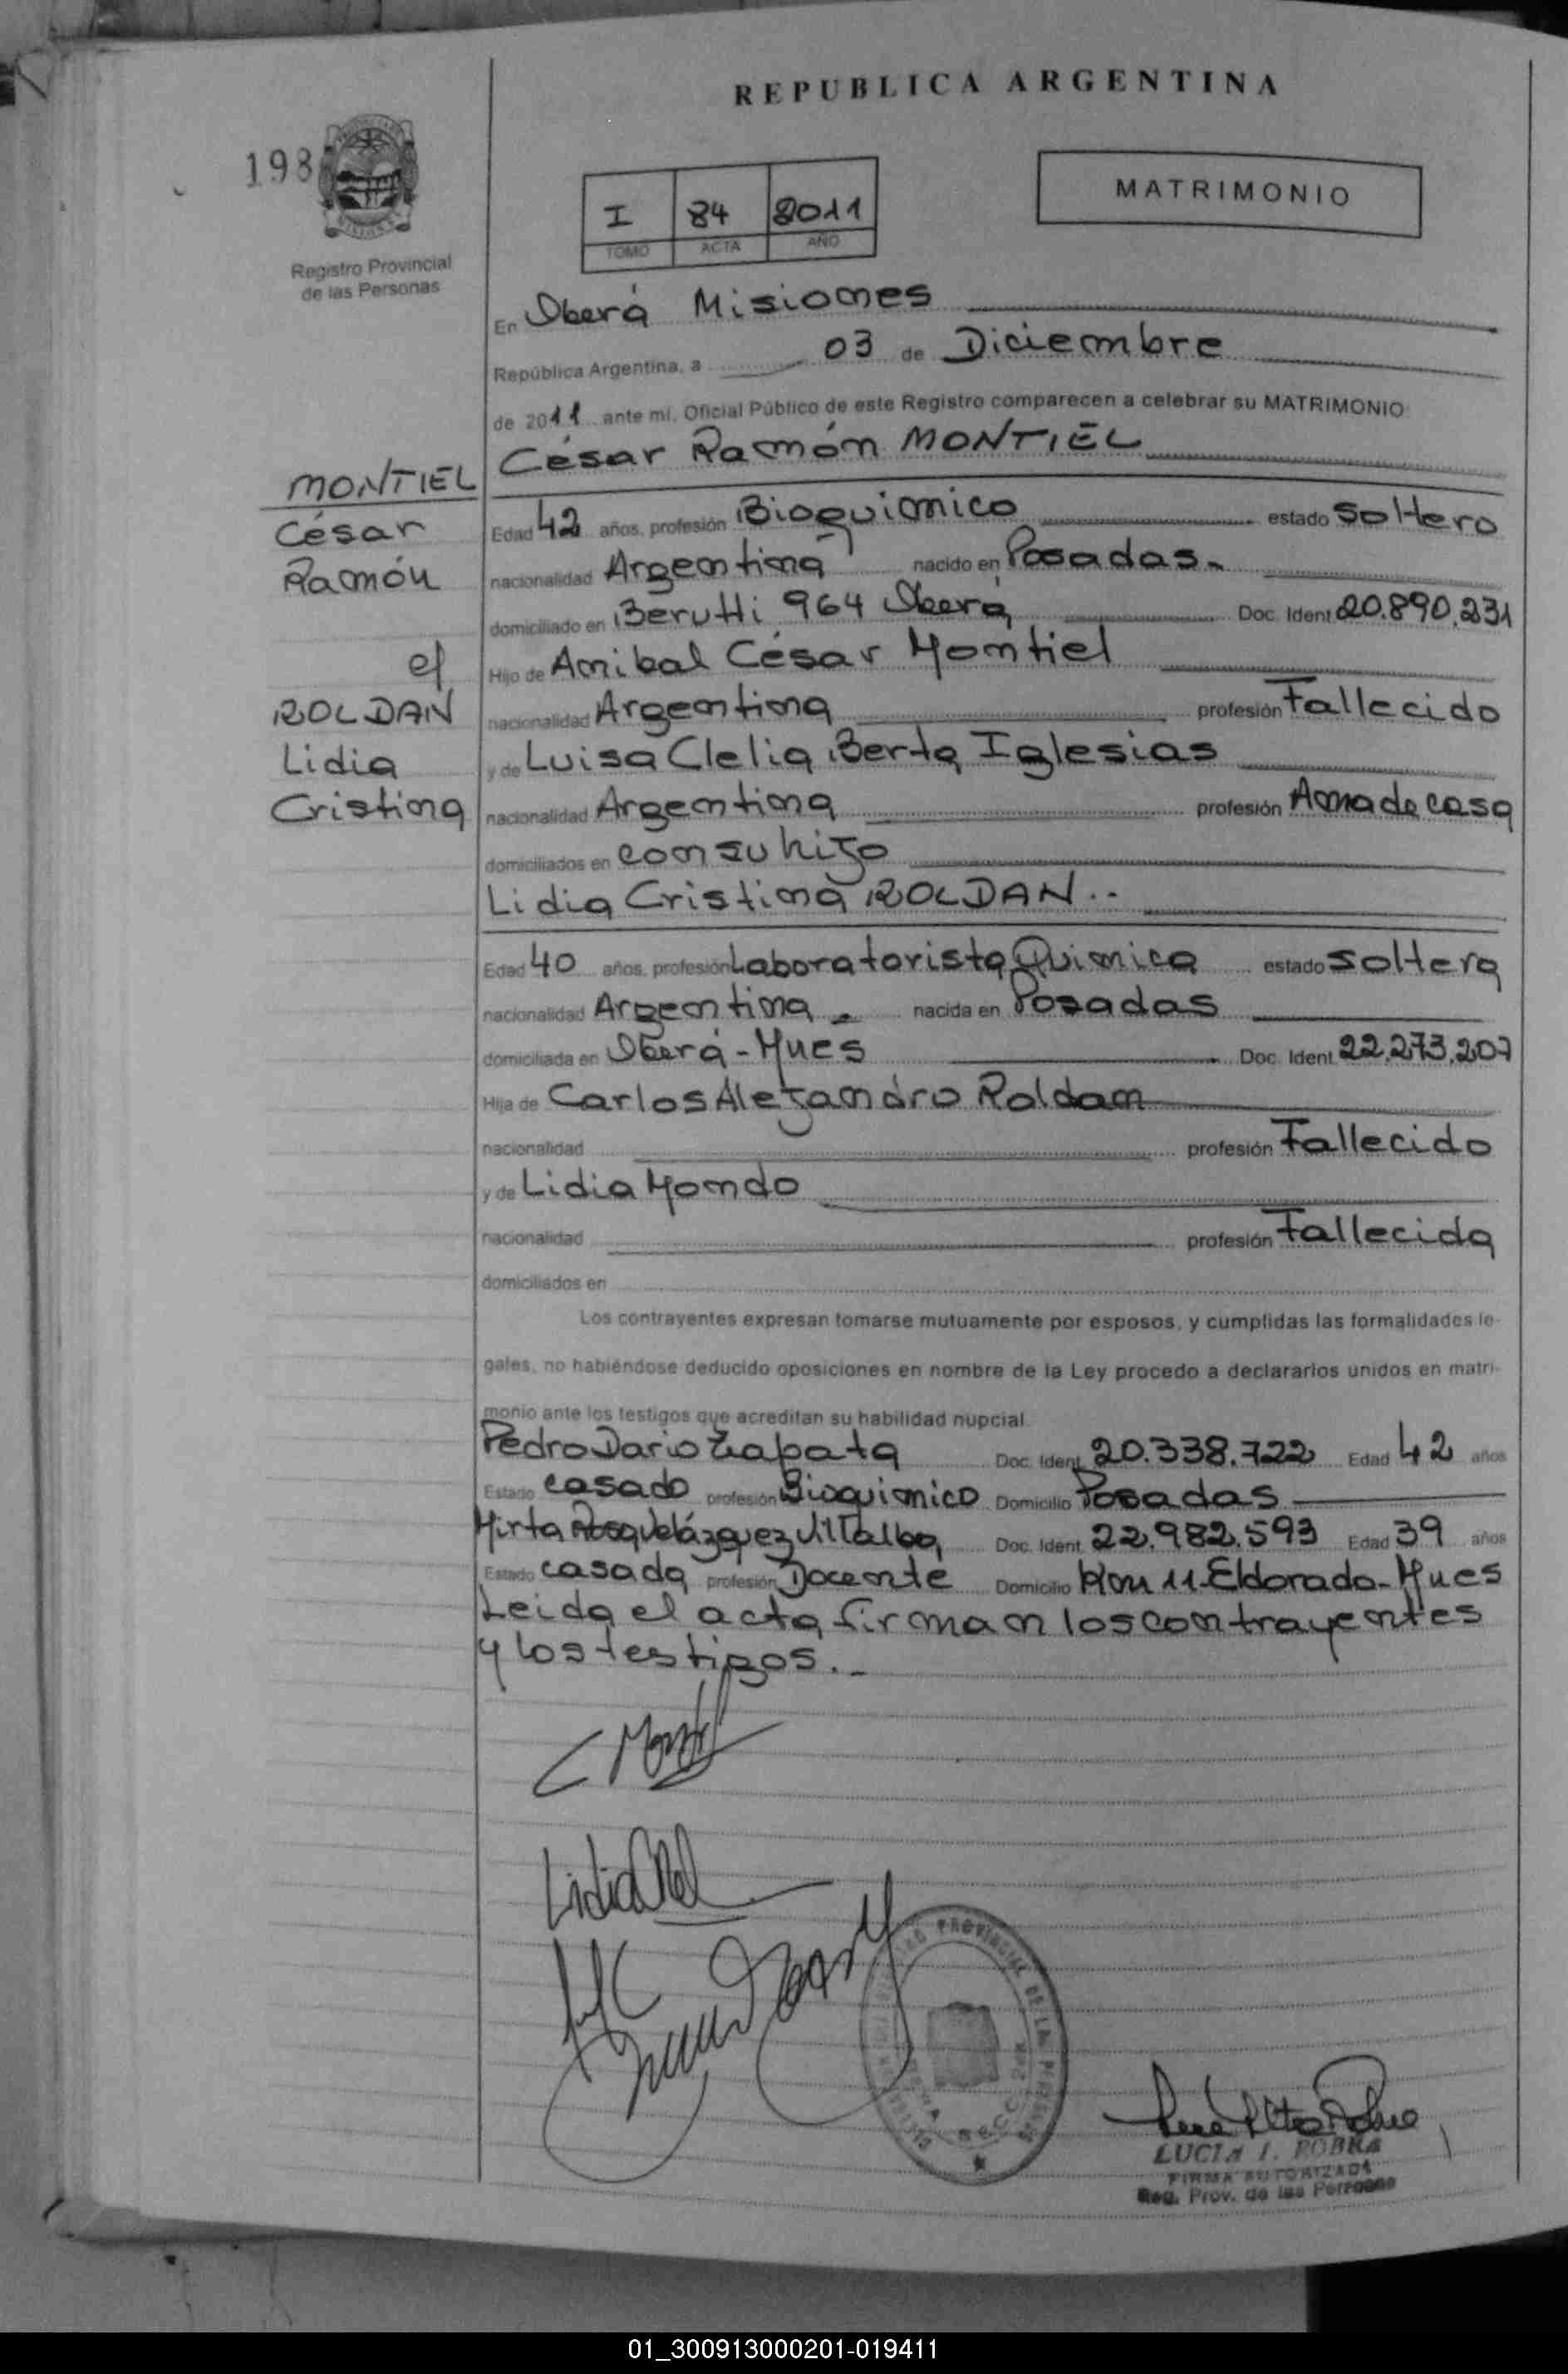 REPUBLICA ARGENTINA
198
MISIONES
Registro Provincial
de las Personas
I 84 2011
TOMO ACTA AÑO
MATRIMONIO
En Oberá Misiones
República Argentina, a 03 de Diciembre
de 2011 ante mí, Oficial Público de este Registro comparecen a celebrar su MATRIMONIO:
César Ramón MONTIEL
MONTIEL
César
Ramón
c/
ROLDAN
Lidia
Cristina
Edad 42 años, profesión Bioquimico estado Soltero
nacionalidad Argentina nacido en Posadas.-
domiciliado en Berutti 964 Oberá Doc. Ident 20.890.231
Hijo de Anibal César Montiel
nacionalidad Argentina profesión Fallecido
y de Luisa Clelia Berta Iglesias
nacionalidad Argentina profesión Ama de casa
domiciliados en con su hijo
Lidia Cristina ROLDAN.-
Edad 40 años, profesión Laboratorista Quimica estado Soltera
nacionalidad Argentina.- nacida en Posadas
domiciliada en Oberá-Mnes Doc. Ident. 22.273.207
Hija de Carlos Alejandro Roldan
nacionalidad profesión Fallecido
y de Lidia Mondo
nacionalidad profesión Fallecida
domiciliados en
Los contrayentes expresan tomarse mutuamente por esposos, y cumplidas las formalidades le-
gales, no habiéndose deducido oposiciones en nombre de la Ley procedo a declararlos unidos en matri-
monio ante los testigos que acreditan su habilidad nupcial.
Pedro Dario Zapata Doc. Ident. 20.338.722 Edad 42 años
Estado casado profesión Bioquimico Domicilio Posadas
Mirta Rosa Velázquez Villalba Doc. Ident. 22.982.593 Edad 39 años
Estado casada profesión Docente Domicilio Km 11-Eldorado-Mnes
Leida el acta firman los contrayentes
y los testigos.-
PROVINCIAL DE LA
LUCIA I. POBRA
FIRMA AUTORIZADA
Reg. Prov. de las Personas
01_300913000201-019411